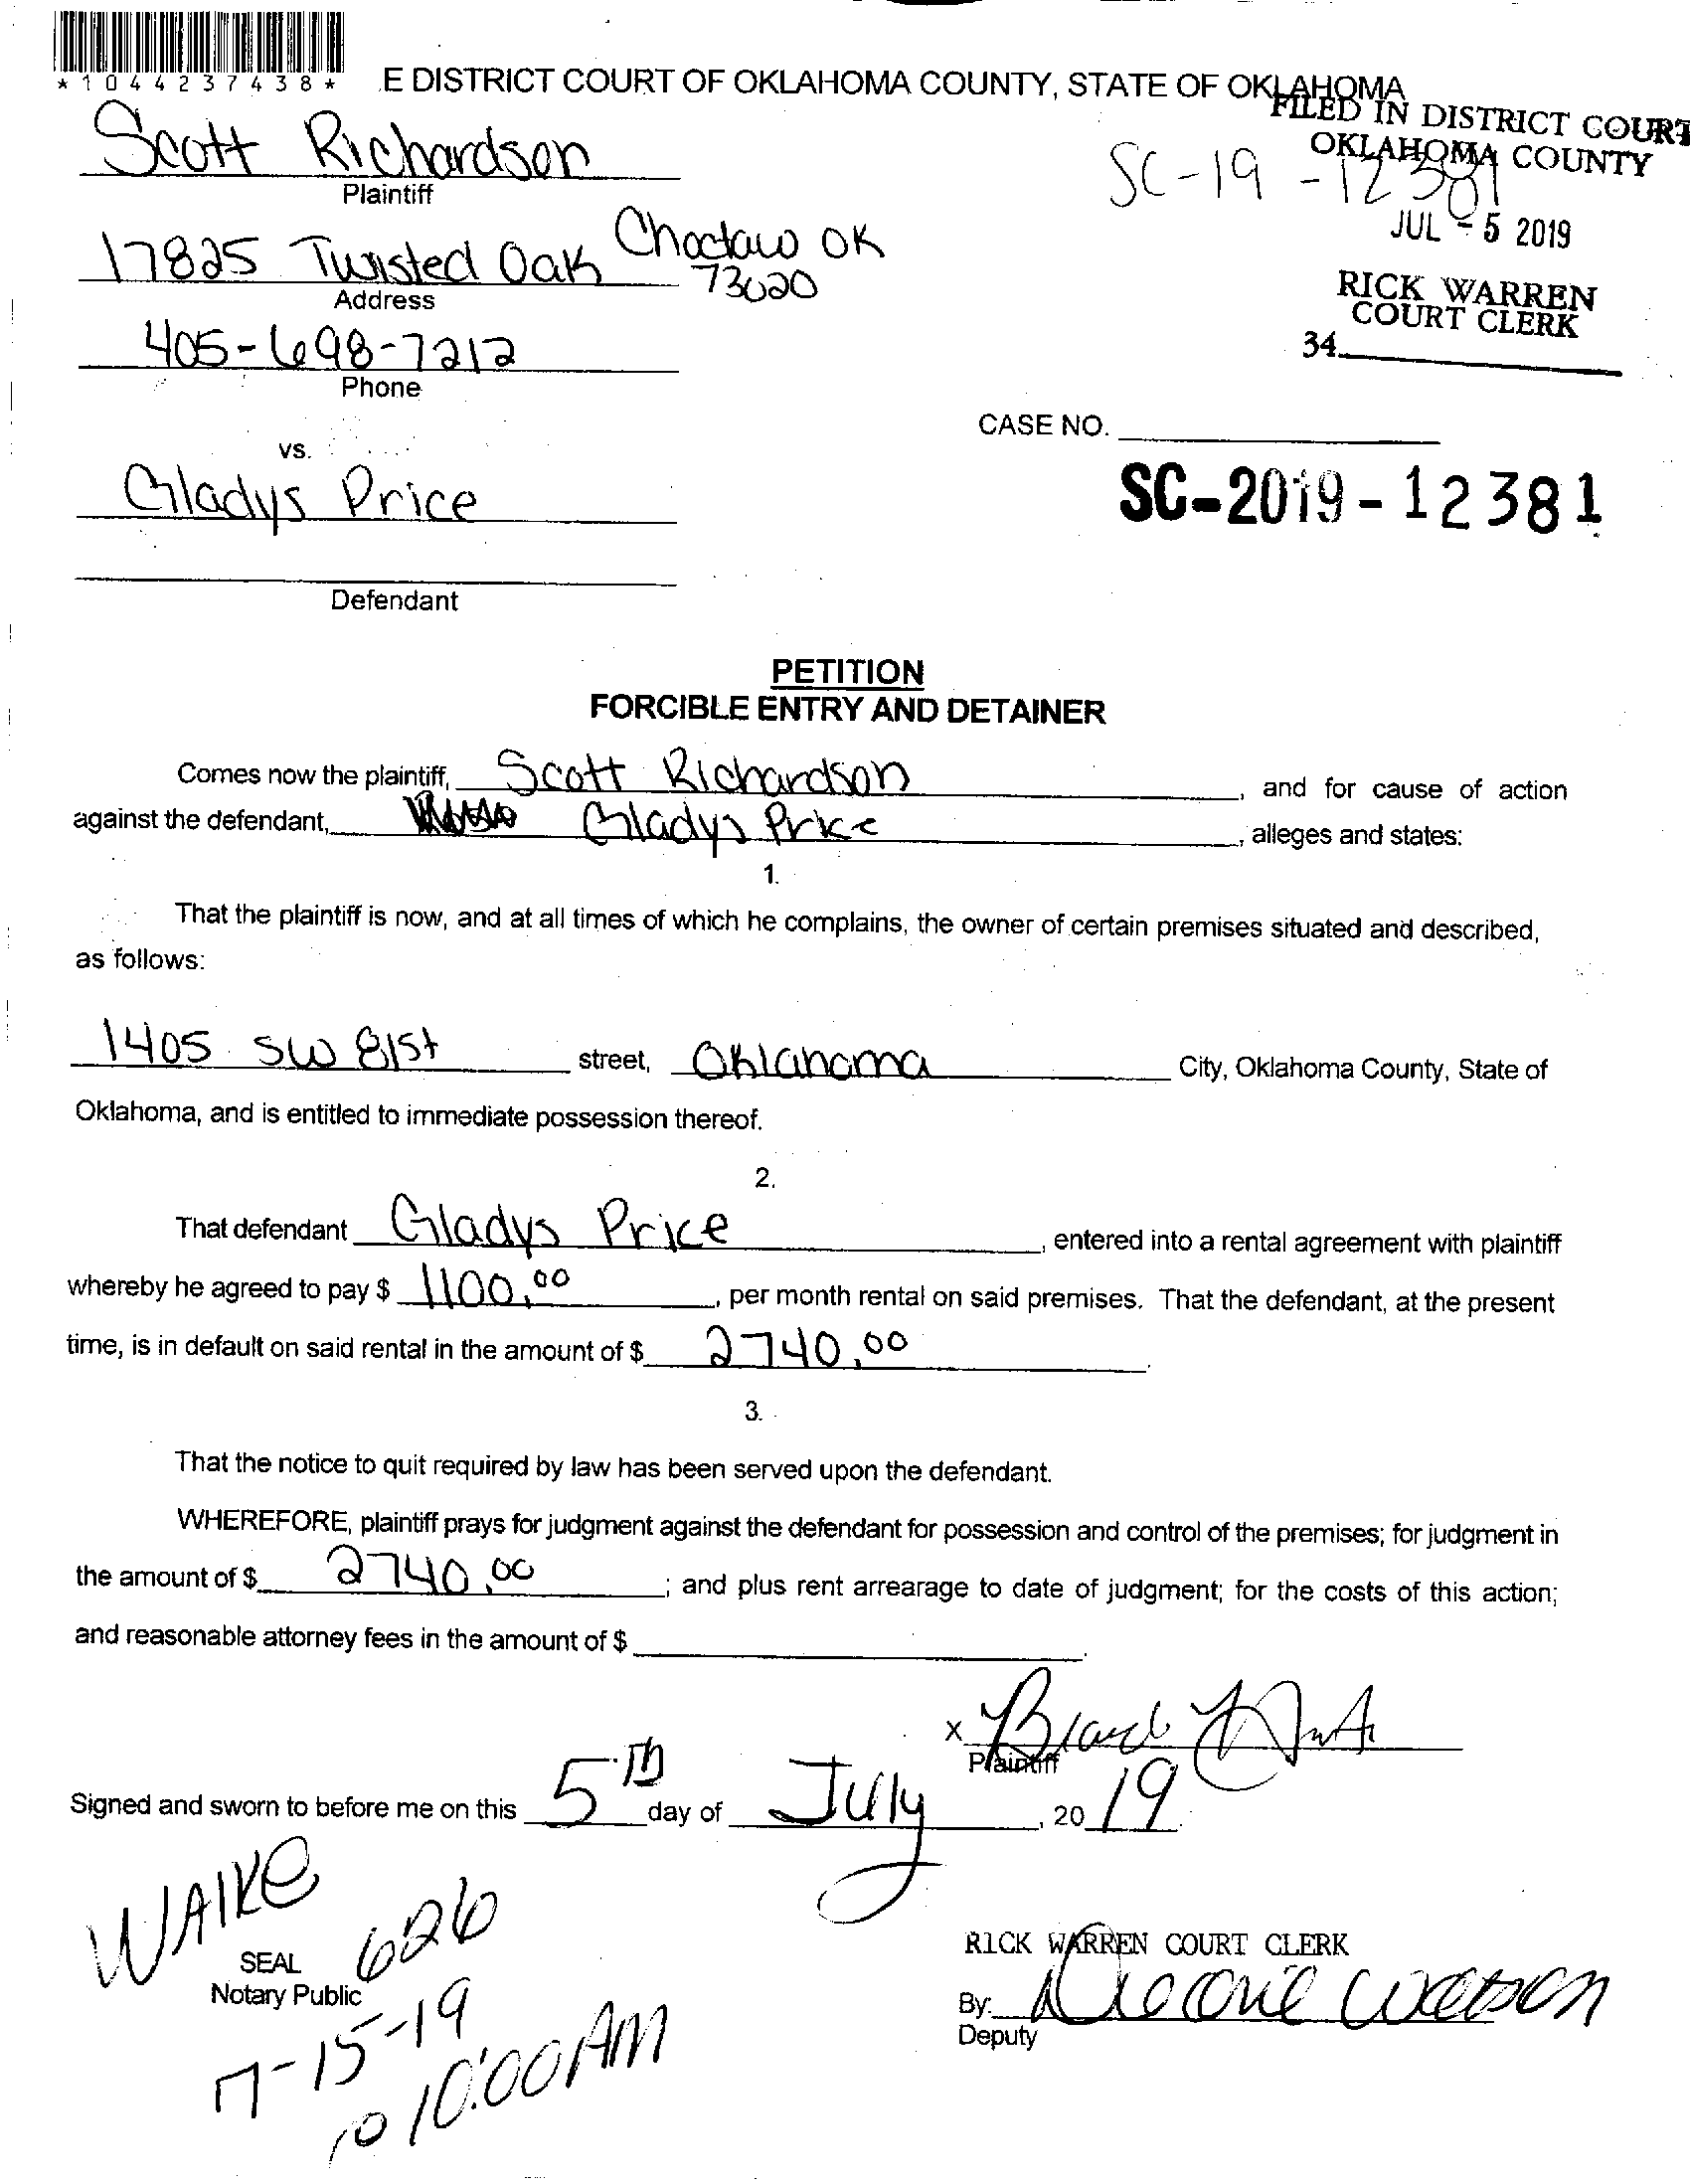 *1044237438*
E DISTRICT COURT OF OKLAHOMA COUNTY, STATE OF OKLAHOMA
FILED IN DISTRICT COURT
OKLAHOMA COUNTY
Scott Richardson
SC-19-12381
Plaintiff
JUL - 5 2019
17825 Twisted Oak Choctaw OK
73020
Address
RICK WARREN
COURT CLERK
405-698-7212
34
Phone
CASE NO.
vs.
Gladys Price
SC-2019-12381
Defendant
PETITION
FORCIBLE ENTRY AND DETAINER
Comes now the plaintiff, Scott Richardson, and for cause of action
against the defendant, Gladys Price, alleges and states:
1.
That the plaintiff is now, and at all times of which he complains, the owner of certain premises situated and described,
as follows:
1405 SW 81st street, Oklahoma City, Oklahoma County, State of
Oklahoma, and is entitled to immediate possession thereof.
2.
That defendant Gladys Price, entered into a rental agreement with plaintiff
whereby he agreed to pay $ 1100.00, per month rental on said premises. That the defendant, at the present
time, is in default on said rental in the amount of $ 2740.00.
3.
That the notice to quit required by law has been served upon the defendant.
WHEREFORE, plaintiff prays for judgment against the defendant for possession and control of the premises; for judgment in
the amount of $ 2740.00; and plus rent arrearage to date of judgment; for the costs of this action;
and reasonable attorney fees in the amount of $.
x
Plaintiff
Signed and sworn to before me on this 5th day of July, 2019
WAlKe
626
SEAL
Notary Public
RICK WARREN COURT CLERK
By: Watson
Deputy
7-15-19
@ 10:00AM